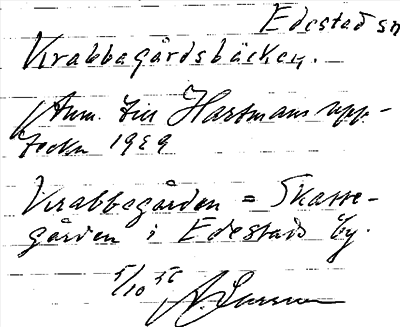 Edestad sn
Krabbegårdsbäcken.
Anm. till Hartmans upp-
teckn 1929
Krabbegården = Skatte-
gården i Edestads by.
5/10 56